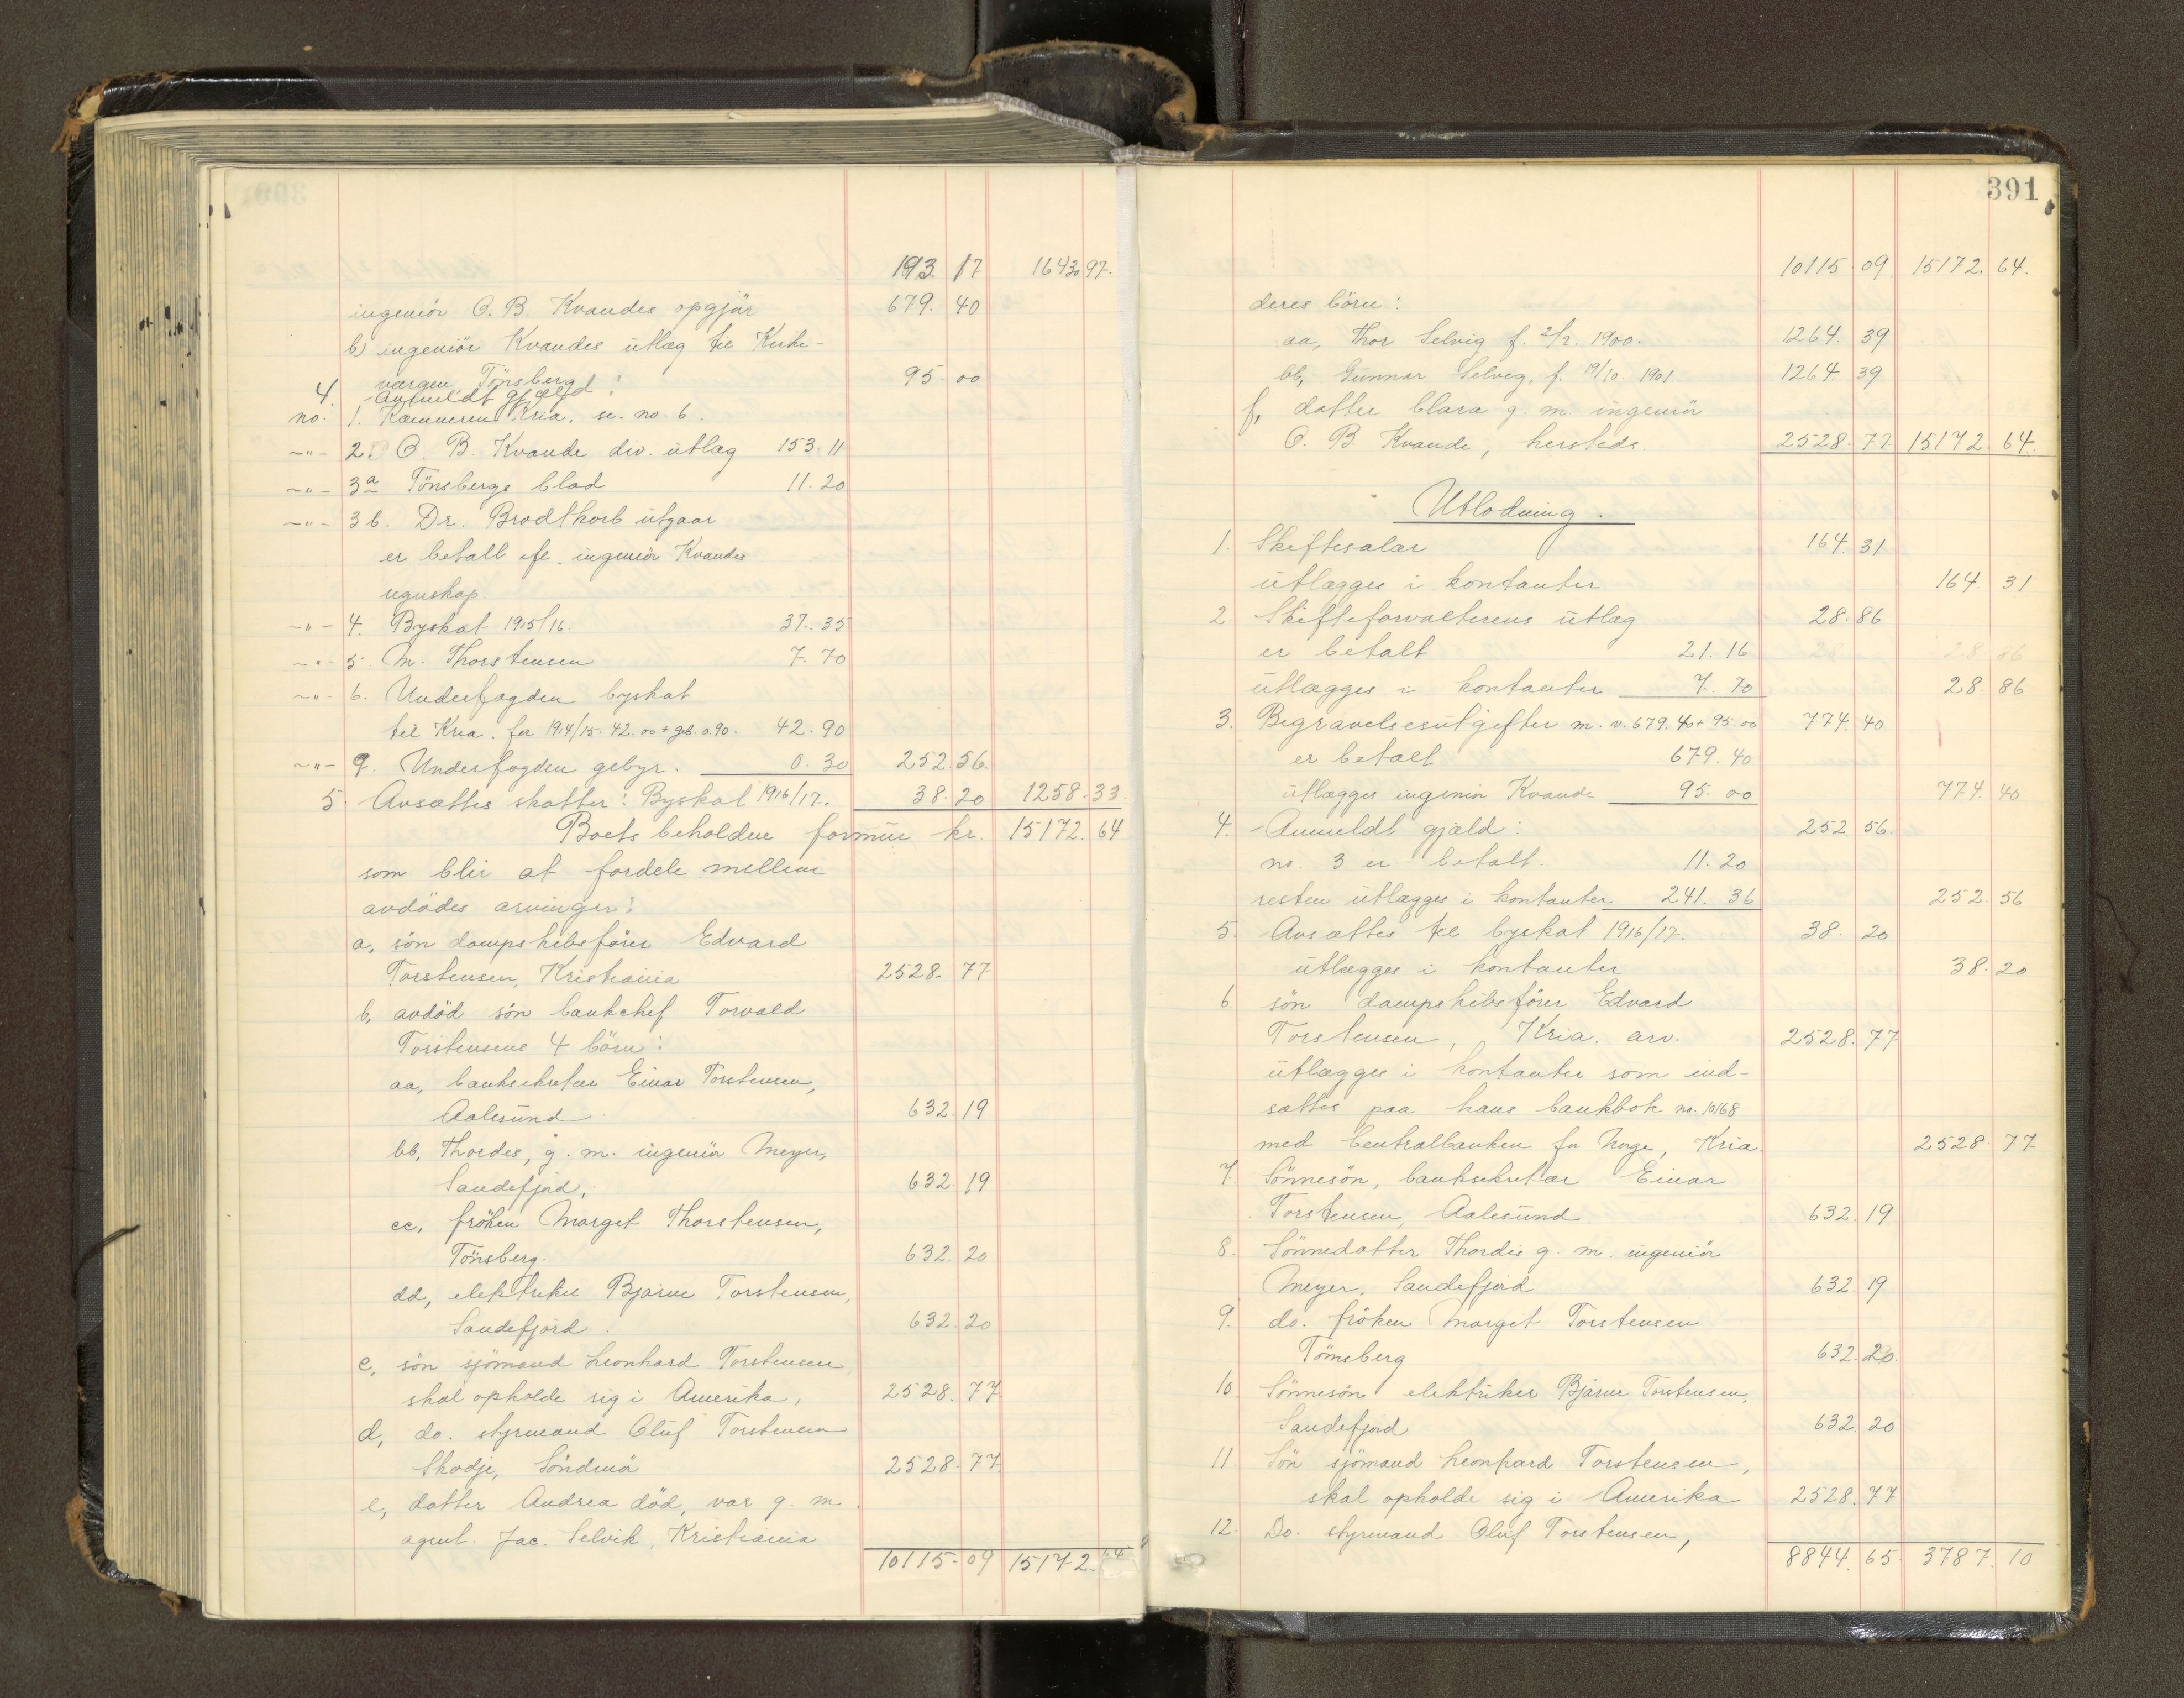 193. 17 16430 97.
ingeniör O. B. Kvandes opgjör 679. 40
b) ingeniör Kvandes utlæg til Kirke-
værgen, Tönsberg 95. 00
4. Anmeldt gjæld:
no. 1. Kæmneren Kria. se. no. 6.
-"- 2. O. B. Kvande div. utlæg 153. 11
-"- 3a Tönsbergs blad 11. 20
-"- 3b. Dr. Brodtkorb utgaar
er betalt efr. ingeniör Kvandes
regnskap
-"- 4. Byskat 1915/16. 37. 35
-"- 5. M. Thorstensen 7. 70
-"- 6. Underfogden byskat
til Kria. for 1914/15. 42.00 + geb. 0.90. 42. 90
-"- 7. Underfogden gebyr. 0. 30 252. 56.
5. Avsættes skatter: Byskat 1916/17. 38. 20 1258. 33.
Boets beholdne formue kr. 15172. 64
som blir at fordele mellem
avdödes arvinger:
a, sön dampskibsförer Edvard
Torstensen, Kristiania 2528. 77
b, avdöd sön bankchef Torvald
Torstensens 4 börn:
aa, banksekretær Einar Torstensen,
Aalesund. 632. 19
bb, Thordes, g. m. ingeniör Meyer,
Sandefjord, 632. 19
cc, fröken Margit Thorstensen,
Tönsberg. 632. 20
dd, elektriker Bjarne Torstensen,
Sandefjord. 632. 20
c, sön sjömand Leonhard Torstensen
skal opholde sig i Amerika, 2528. 77.
d, do. styrmand Oluf Torstensen
Skodje, Söndmör 2528. 77.
e, datter Andrea död, var g. m.
agent. Jac. Selvik, Kristiania
10115. 09 15172. 64
391
10115 09. 15172. 64.
deres börn:
aa, Thor Selvig f. 2/2. 1900. 1264. 39
bb, Gunnar Selvig, f. 19/10. 1901. 1264. 39
f, datter Clara g. m. ingeniör
O. B. Kvande, hersteds. 2528. 77. 15172. 64.
Utlodning.
1. Skiftesalær 164 31
utlægges i kontanter 164. 31
2 Skifteforvalterens utlæg 28. 86
er betalt 21. 16
utlægges i kontanter 7. 70 28. 86
3. Begravelsesutgifter m. v. 679. 40 + 95. 00 774. 40
er betalt 679. 40
utlægges ingeniör Kvande 95. 00 774. 40
4. Anmeldt gjæld: 252. 56
no. 3 er betalt. 11. 20
resten utlægges i kontanter 241. 36 252. 56
5. Avsættes til byskat 1916/17. 38. 20
utlægges i kontanter 38. 20
6 sön dampskibsförer Edvard
Torstensen, Kria. arv. 2528. 77
utlægges i kontanter som ind-
sættes paa hans bankbok no. 10168
med Centralbanken for Norge, Kria. 2528. 77
7. Sönnesön, banksekretær Einar
Torstensen, Aalesund. 632. 19
8. Sönnedatter Thordis g. m. ingeniör
Meyer, Sandefjord 632. 19
9. do. fröken Margit Torstensen
Tönsberg 632. 20.
10 Sönnesön elektriker Bjarne Torstensen,
Sandefjord 632. 20
11. Sön sjömand Leonhard Torstensen,
skal opholde sig i Amerika 2528. 77
12. Do. styrmand Oluf Torstensen,
8844. 65 3787. 10